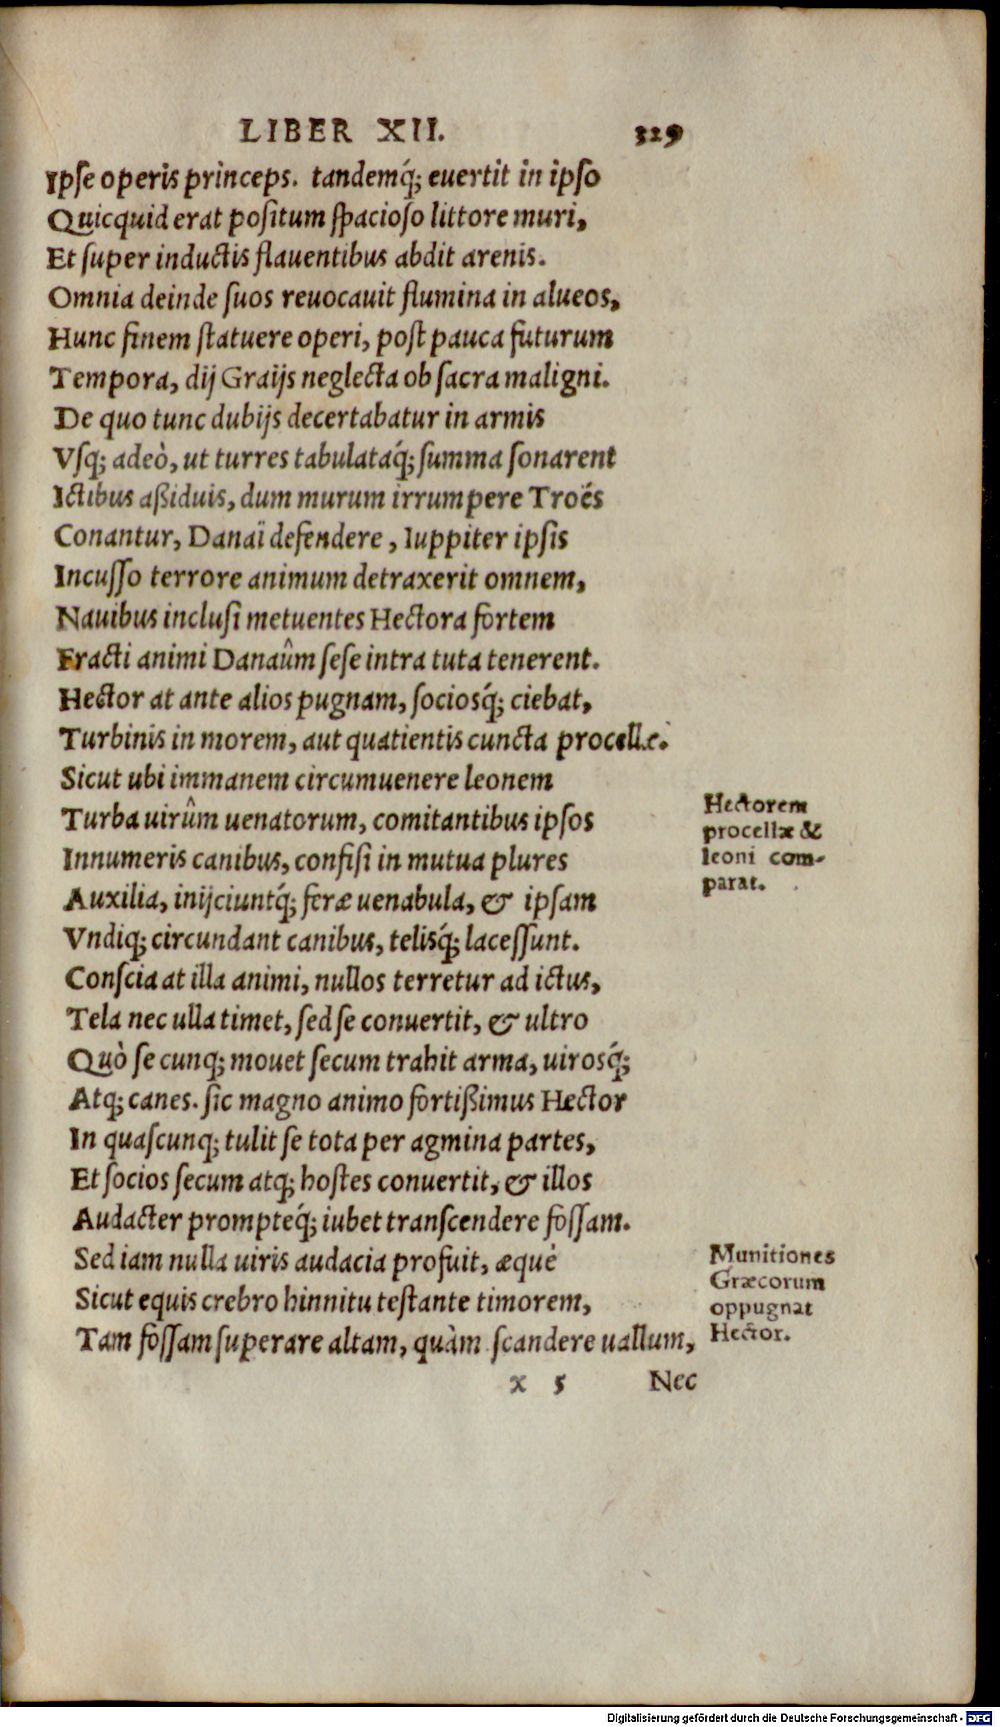 LIBER XII. 329
Ipse operis princeps. tandemq́; euertit in ipso
Quicquid erat positum spacioso littore muri,
Et super inductis flauentibus abdit arenis.
Omnia deinde suos reuocauit flumina in alueos,
Hunc finem statuere operi, post pauca futurum
Tempora, dij Graijs neglecta ob sacra maligni.
De quo tunc dubijs decertabatur in armis
Vsq; adeò, ut turres tabulataq́; summa sonarent
Ictibus aßiduis, dum murum irrumpere Troës
Conantur, Danaï defendere, Iuppiter ipsis
Incusso terrore animum detraxerit omnem,
Nauibus inclusi metuentes Hectora fortem
Fracti animi Danaûm sese intra tuta tenerent.
Hector at ante alios pugnam, sociosq́; ciebat,
Turbinis in morem, aut quatientis cuncta procellæ.
Sicut ubi immanem circumuenere leonem
Turba uirûm uenatorum, comitantibus ipsos
Innumeris canibus, confisi in mutua plures
Auxilia, inijciuntq́; feræ uenabula, & ipsam
Vndiq; circundant canibus, telisq́; lacessunt.
Conscia at illa animi, nullos terretur ad ictus,
Tela nec ulla timet, sed se conuertit, & ultro
Quò se cunq; mouet secum trahit arma, uirosq́;
Atq; canes. sic magno animo fortißimus Hector
In quascunq; tulit se tota per agmina partes,
Et socios secum atq; hostes conuertit, & illos
Audacter prompteq́; iubet transcendere fossam.
Sed iam nulla uiris audacia profuit, æquè
Sicut equis crebro hinnitu testante timorem,
Tam fossam superare altam, quàm scandere uallum,
x 5 Nec
Hectorem
procellæ &
leoni com-
parat.
Munitiones
Græcorum
oppugnat
Hector.
Digitalisierung gefördert durch die Deutsche Forschungsgemeinschaft - DFG